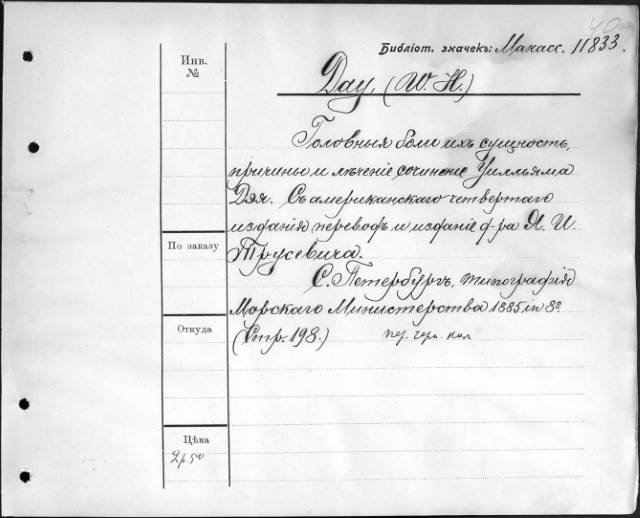 40
Библіот. значекъ: Манасс. 11833.
Инв.
№
Day, (W. H.)
Головныя боли ихъ сущность,
причины и лѣченіе сочиненіе Уилльяма
Дэя. Съ американскаго четвертаго
изданія переводъ и изданіе д-ра Я. И.
Трусевича.
По заказу
С. Петербургъ, типографія
Морскаго Министерства 1885 in 8º
Откуда
(Стр. 198.)
пер. черн. кол
Цѣна
2 р. 50